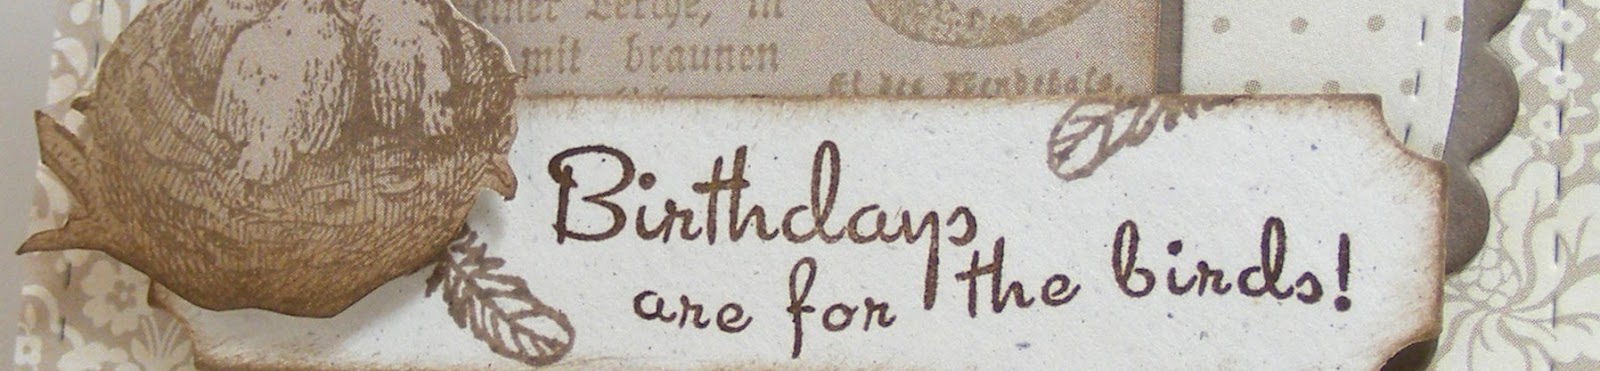 einer Lerche, in
mit braunen
Ei des Wendehals.
Birthdays
are for the birds!